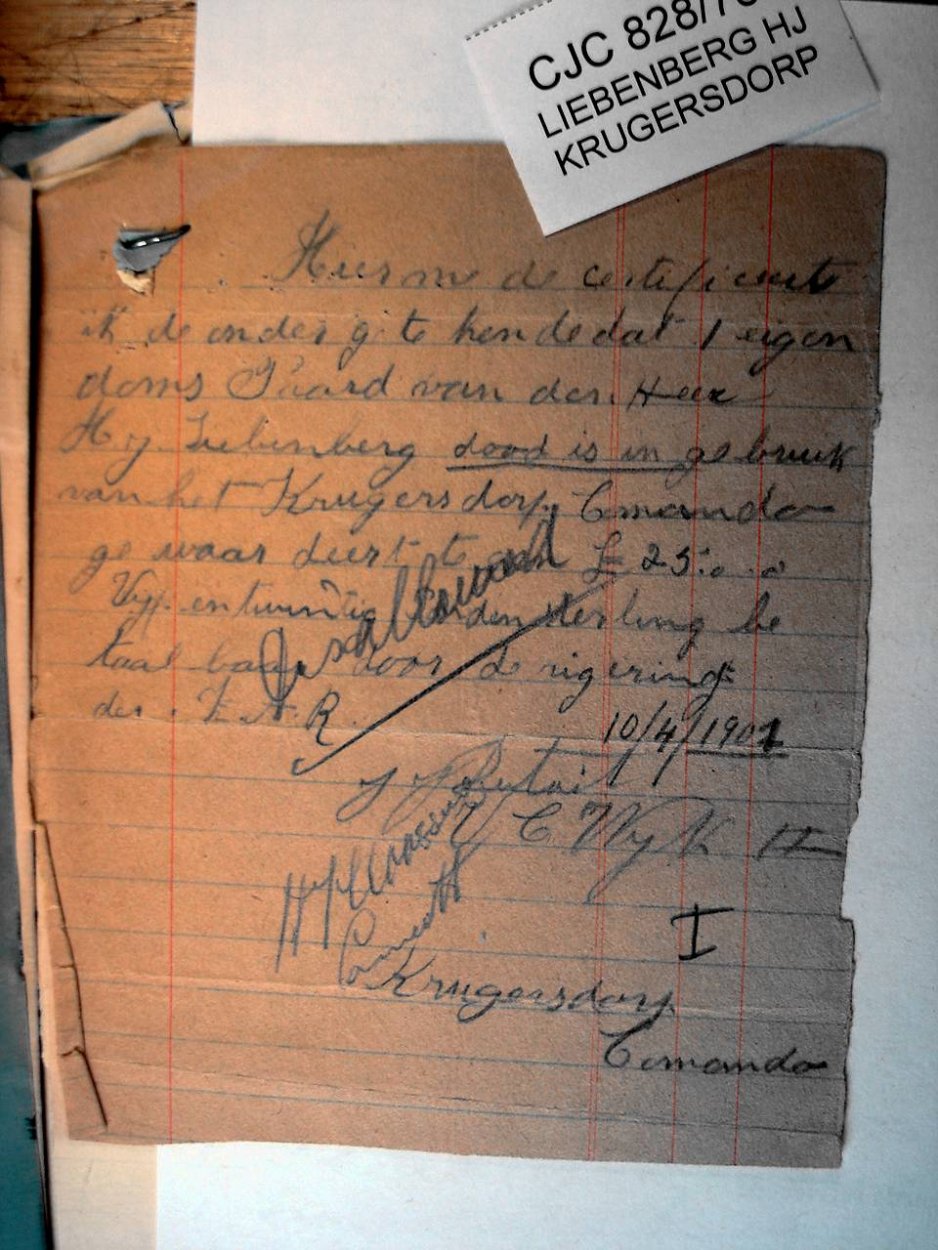 CJC 828/
LIEBENBERG HJ
KRUGERSDORP
Hierme de certificeete
ik de onder g te kende dat 1 eigen
doms Paard van den Heer
H J Liebenberg dood is in gebruik
van het Krugersdorp Comando
ge waar deert te £ 25: o o
Vyf en twintig sterling be
taal baar door de rigering
der Z A R.
10/4/1901
V C Wyk
I
Krugersdorp
Comando